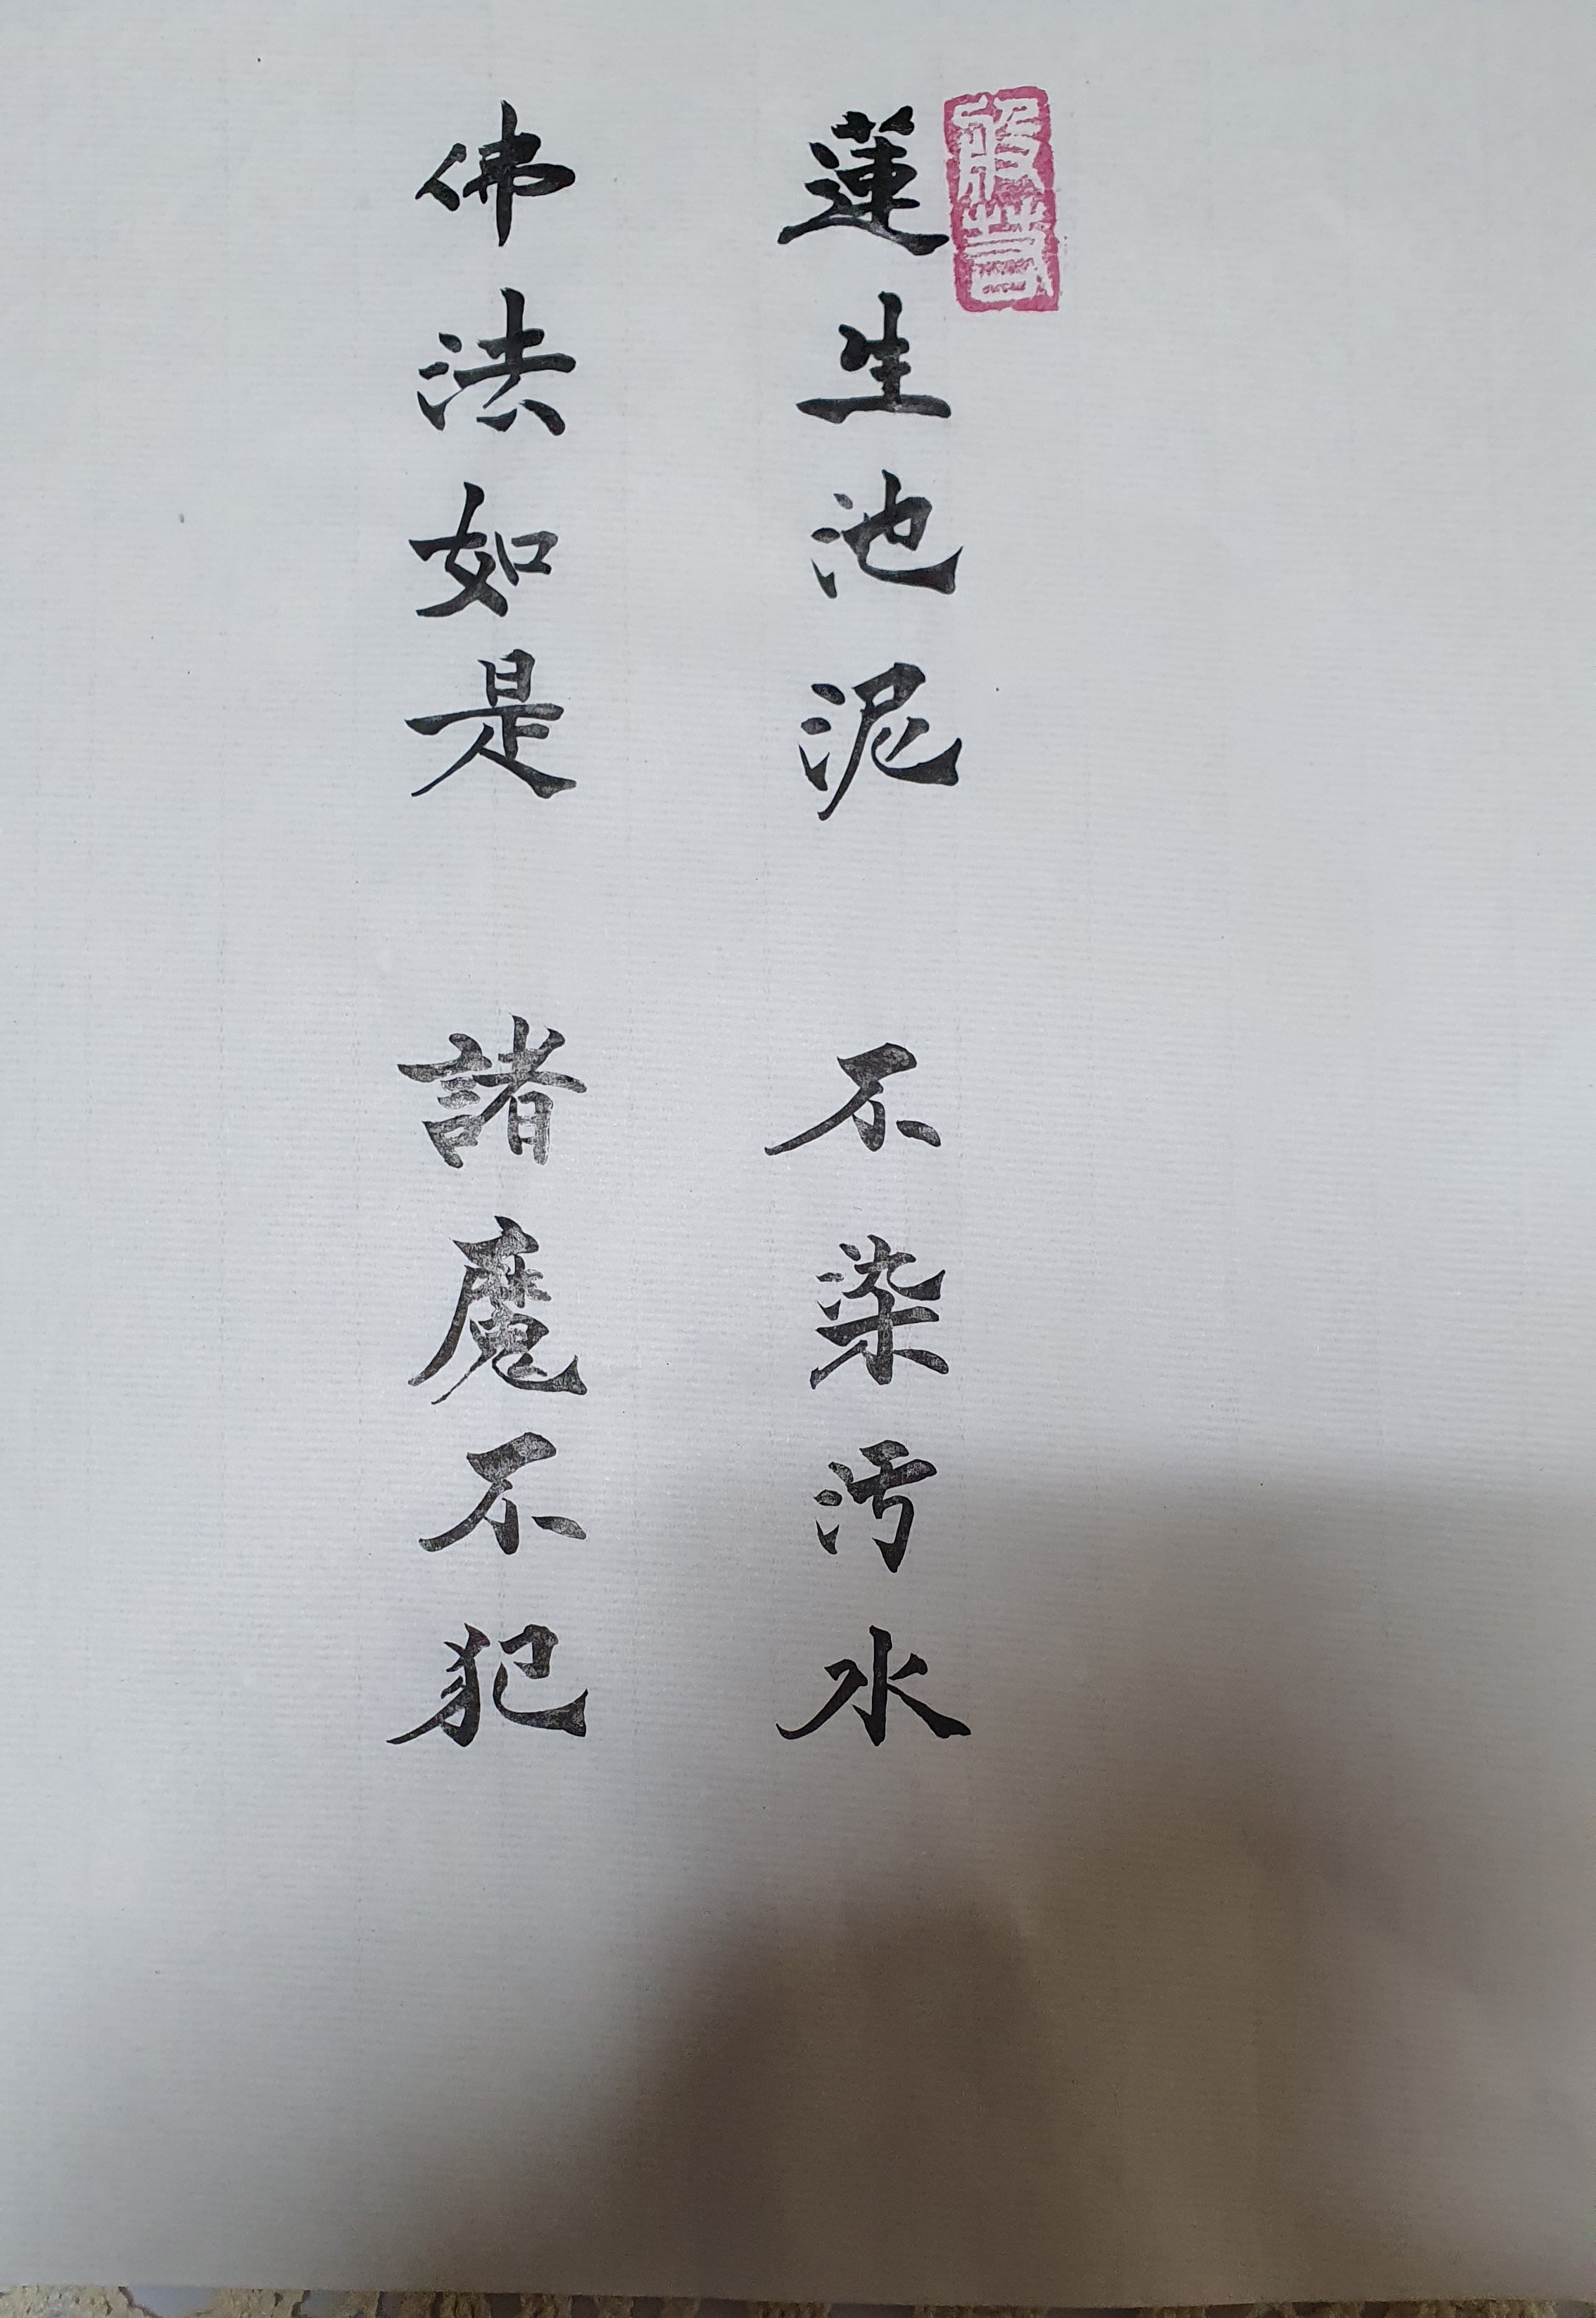 蓮生池泥 不染汚水
佛法如是 諸魔不犯